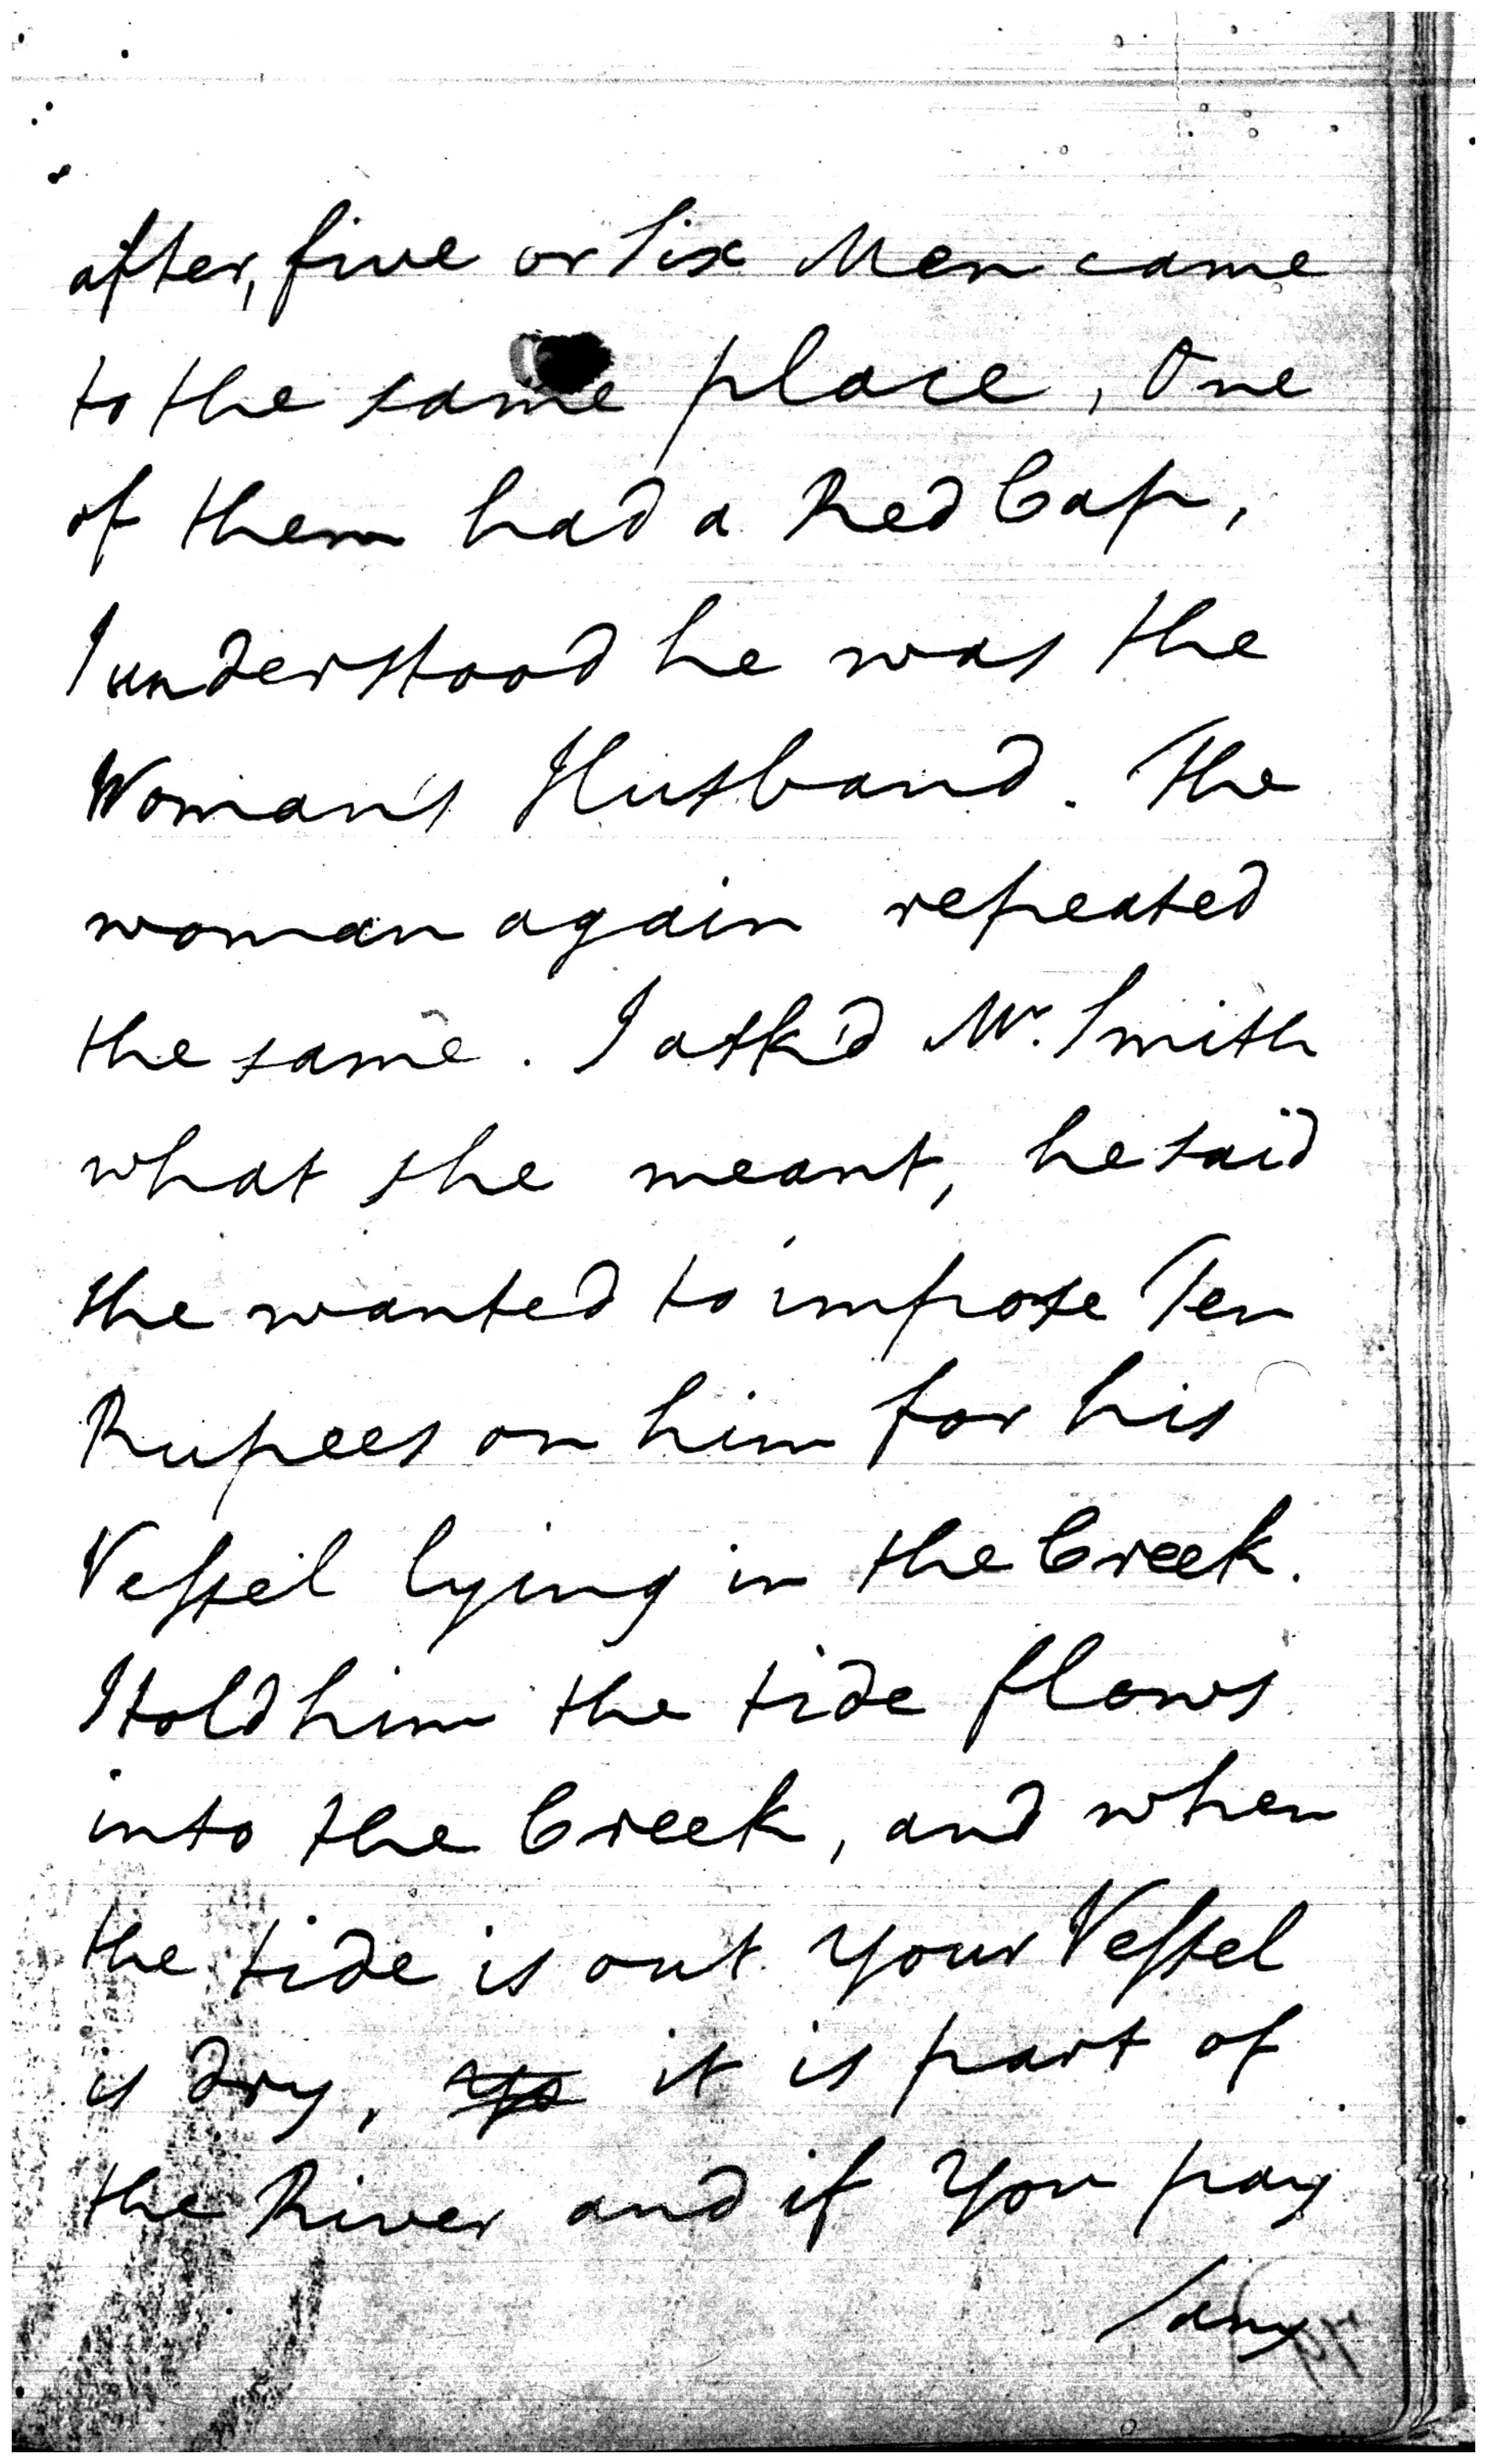 after, five or Six Men came
to the same place, One
of them had a Red Cap,
I understood he was the
Woman's Husband. The
woman again repeated
the same. I ask'd Mr. Smith
what she meant, he said
she wanted to impose Ten
Rupees on him for his
Vessel lying in the Creek.
I told him the tide flows
into the Creek, and when
the tide is out your Vessel
is dry, it is part of
the River and if you pay
/any